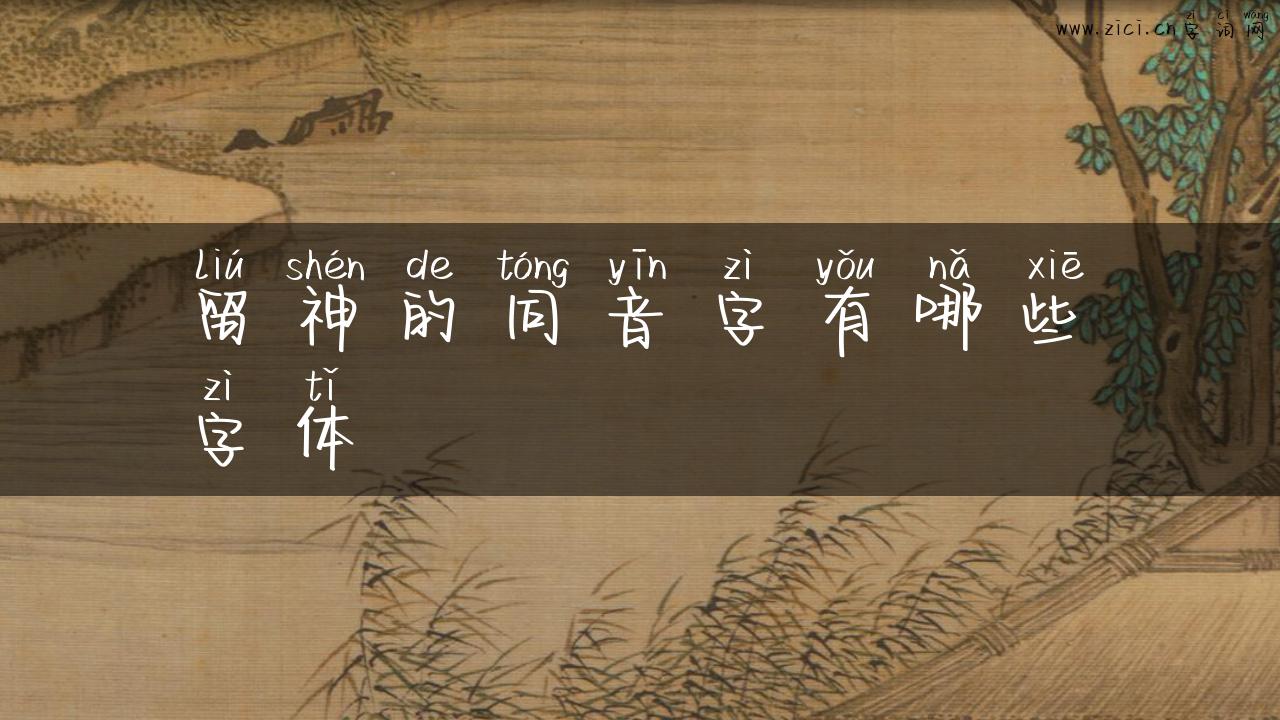 zì cí wǎng
www.zici.cn字词网
liú shén de tóng yīn zì yǒu nǎ xiē
留神的同音字有哪些
zì tǐ
字体